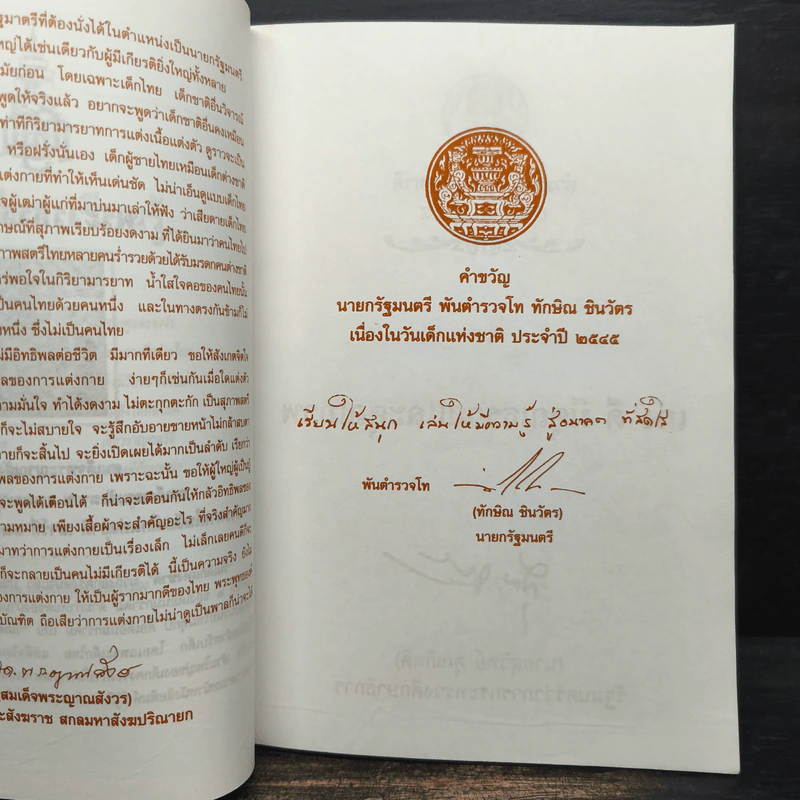 ฐมาตรีที่ต้องนั่งได้ในตำแหน่งเป็นนายกรัฐมนตรี
ใหญ่ได้เช่นเดียวกับผู้มีเกียรติยิ่งใหญ่ทั้งหลาย
มัยก่อน โดยเฉพาะเด็กไทย เด็กชาติอื่นวิจารณ์
พูดให้จริงแล้ว อยากจะพูดว่าเด็กชาติอื่นคงเหมือน
ท่าที่กิริยามารยาทการแต่งเนื้อแต่งตัว ดูราวจะเป็น
หรือฝรั่งนั่นเอง เด็กผู้ชายไทยเหมือนเด็กต่างชาติ
แต่งกายที่ทำให้เห็นเด่นชัด ไม่น่าเอ็นดูแบบเด็กไทย
ใจผู้เฒ่าผู้แก่ที่มาบ่นมาเล่าให้ฟัง ว่าเสียดายเด็กไทย
กษณ์ที่สุภาพเรียบร้อยงดงาม ที่ได้ยินมาว่าคนไทยไป
ภาพสตรีไทยหลายคนร่ำรวยด้วยได้รับมรดกคนต่างชาติ
พอใจในกิริยามารยาท น้ำใสใจคอของคนไทยนั้น
เป็นคนไทยด้วยคนหนึ่ง และในทางตรงกันข้ามก็ไม่
หนึ่ง ซึ่งไม่เป็นคนไทย
ม่มีอิทธิพลต่อชีวิต มีมากทีเดียว ขอให้สังเกตจิตใจ
ผลของการแต่งกาย ง่ายๆก็เช่นกันเมื่อใดแต่งตัว
วามมั่นใจ ทำได้งดงาม ไม่ตะกุกตะกัก เป็นสุภาพสตรี
ก็จะไม่สบายใจ จะรู้สึกอับอายขายหน้าไม่กล้าสบตา
ายก็จะสิ้นไป จะยิ่งเปิดเผยได้มากเป็นลำดับ เรียกว่า
พลของการแต่งกาย เพราะฉะนั้น ขอให้ผู้ใหญ่ผู้เป็นผู้
จะพูดได้เตือนได้ ก็น่าจะเตือนกันให้กลัวอิทธิพลของ
ามหมาย เพียงเสื้อผ้าจะสำคัญอะไร ที่จริงสำคัญมาก
มาทว่าการแต่งกายเป็นเรื่องเล็ก ไม่เล็กเลยคนดีก็จะ
ก็จะกลายเป็นคนไม่มีเกียรติได้ นี้เป็นความจริง
องการแต่งกาย ให้เป็นผู้รากมากดีของไทย พระพุทธองค์
บัณฑิต ถือเสียว่าการแต่งกายไม่น่าดูเป็นพาลก็น่าจะได้
สมเด็จพระญาณสังวร)
ะสังฆราช สกลมหาสังฆปริณายก
คำขวัญ
นายกรัฐมนตรี พันตำรวจโท ทักษิณ ชินวัตร
เนื่องในวันเด็กแห่งชาติ ประจำปี ๒๕๔๕
เรียนให้สนุก เล่นให้มีความรู้ สู่อนาคต ที่สดใส
พันตำรวจโท
(ทักษิณ ชินวัตร)
นายกรัฐมนตรี